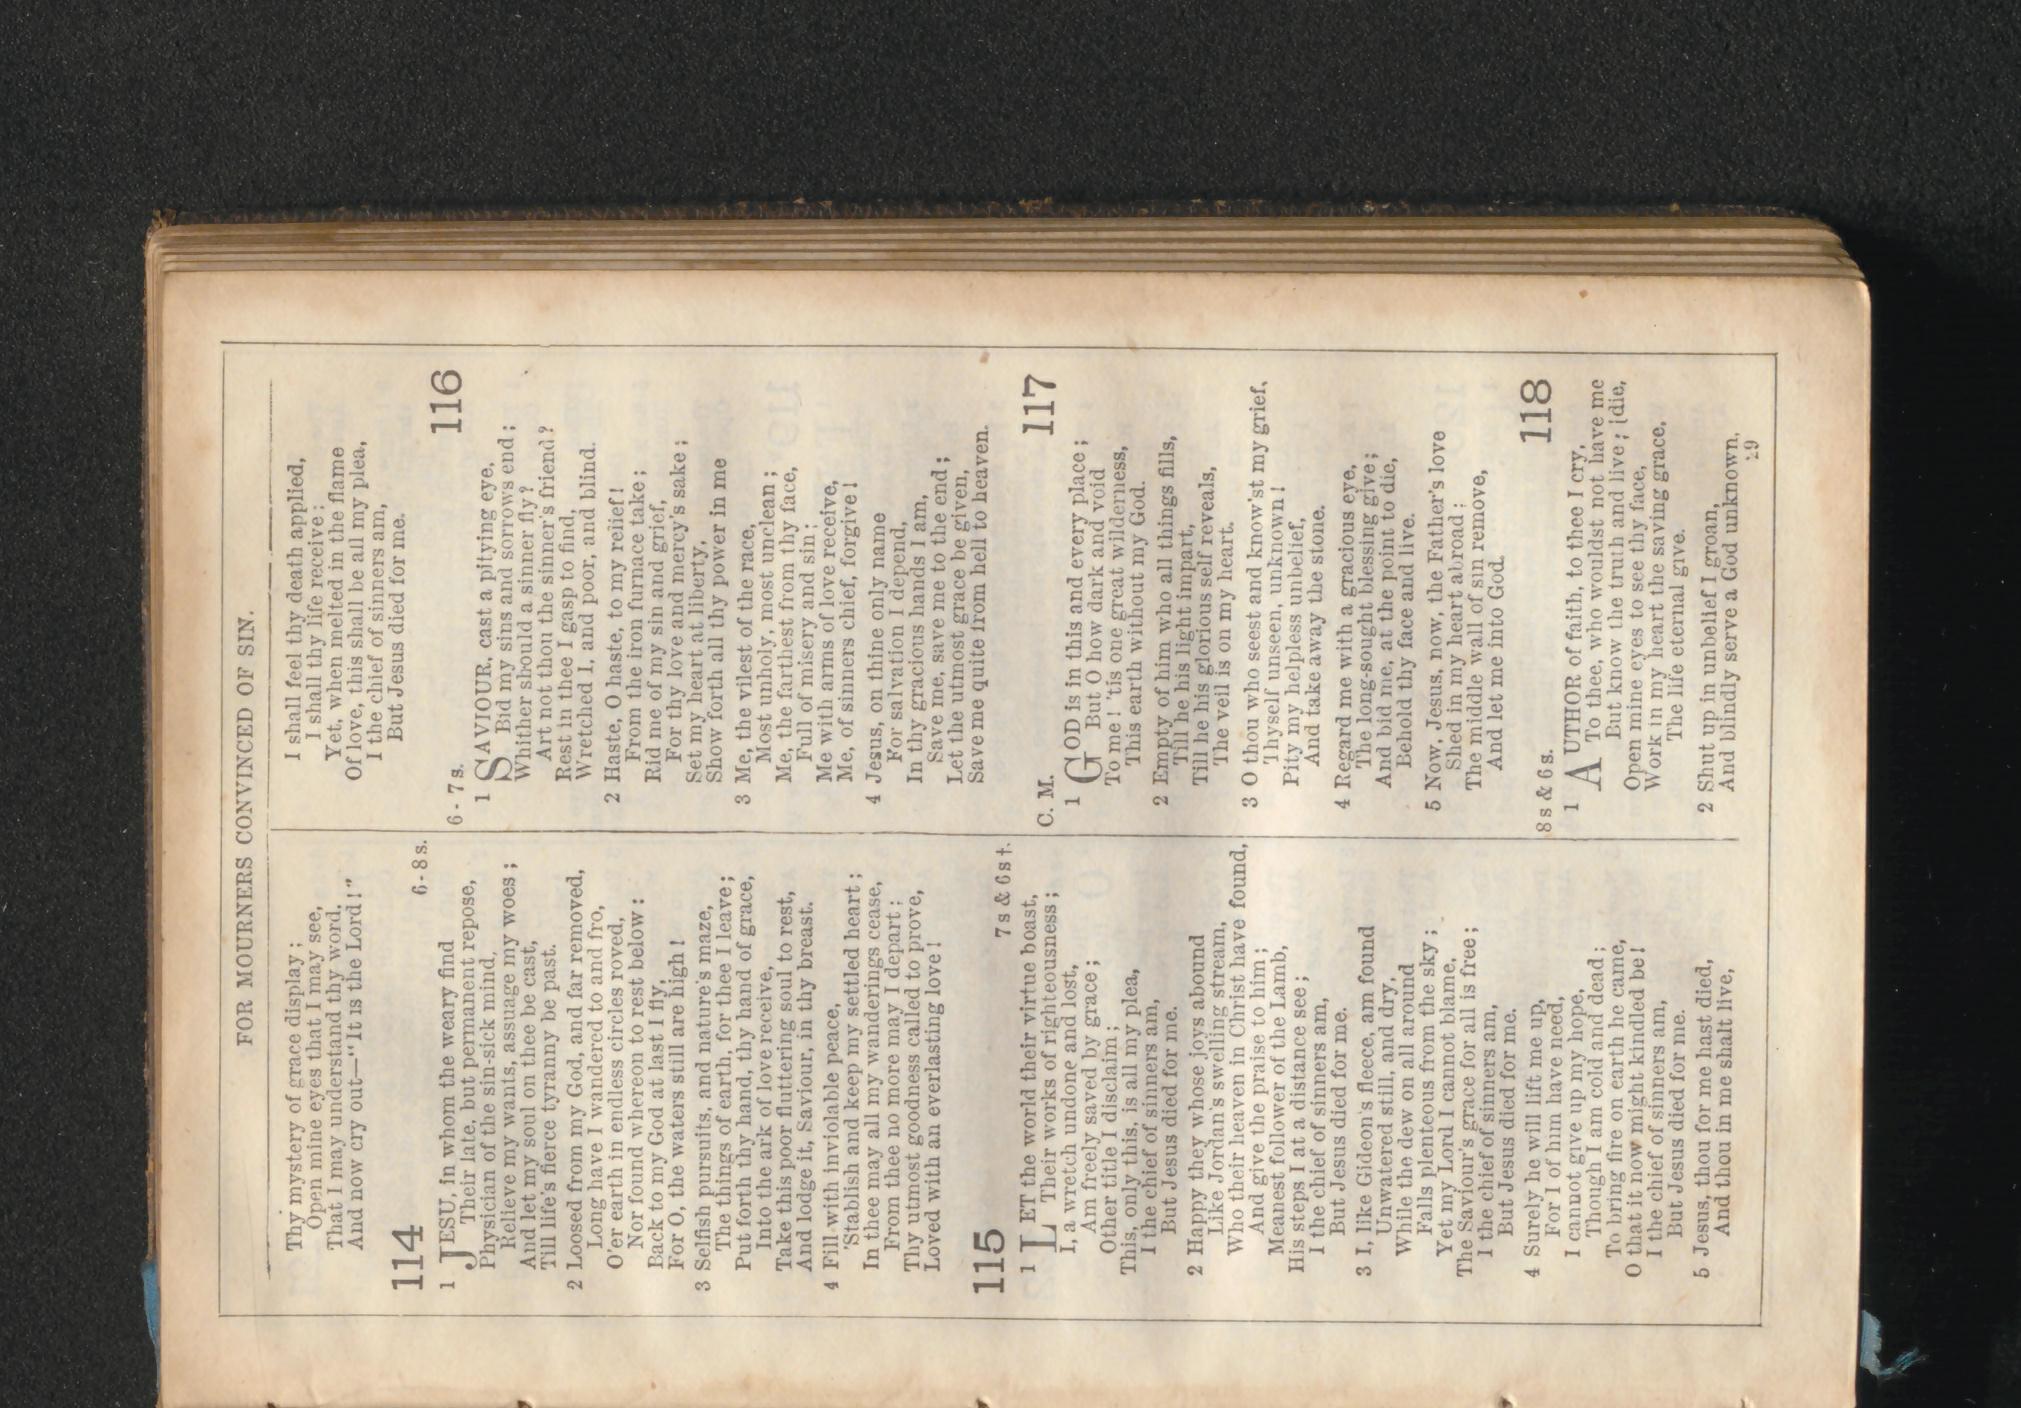 FOR MOURNERS CONVINCED OF SIN.
Thy mystery of grace display;
Open mine eyes that I may see,
That I may understand thy word.
And now cry out—“It is the Lord!”
114 6-8s.
1 JESU, in whom the weary find
Their late, but permanent repose,
Physician of the sin-sick mind,
Relieve my wants, assuage my woes;
And let my soul on thee be cast,
Till life's fierce tyranny be past.
2 Loosed from my God, and far removed,
Long have I wandered to and fro,
O'er earth in endless circles roved,
Nor found whereon to rest below:
Back to my God at last I fly,
For O, the waters still are high!
3 Selfish pursuits, and nature's maze,
The things of earth, for thee I leave;
Put forth thy hand, thy hand of grace,
Into the ark of love receive,
Take this poor fluttering soul to rest,
And lodge it, Saviour, in thy breast.
4 Fill with inviolable peace,
'Stablish and keep my settled heart;
In thee may all my wanderings cease,
From thee no more may I depart;
Thy utmost goodness called to prove,
Loved with an everlasting love!
115 7s & 6s†.
1 LET the world their virtue boast,
Their works of righteousness;
I, a wretch undone and lost,
Am freely saved by grace;
Other title I disclaim;
This, only this, is all my plea,
I the chief of sinners am,
But Jesus died for me.
2 Happy they whose joys abound
Like Jordan's swelling stream,
Who their heaven in Christ have found,
And give the praise to him;
Meanest follower of the Lamb,
His steps I at a distance see;
I the chief of sinners am,
But Jesus died for me.
3 I, like Gideon's fleece, am found
Unwatered still, and dry,
While the dew on all around
Falls plenteous from the sky;
Yet my Lord I cannot blame,
The Saviour's grace for all is free;
I the chief of sinners am,
But Jesus died for me.
4 Surely he will lift me up,
For I of him have need,
I cannot give up my hope,
Though I am cold and dead;
To bring fire on earth he came,
O that it now might kindled be!
I the chief of sinners am,
But Jesus died for me.
5 Jesus, thou for me hast died,
And thou in me shalt live,
I shall feel thy death applied,
I shall thy life receive;
Yet, when melted in the flame
Of love, this shall be all my plea,
I the chief of sinners am,
But Jesus died for me.
6-7s. 116
1 SAVIOUR, cast a pitying eye,
Bid my sins and sorrows end;
Whither should a sinner fly?
Art not thou the sinner's friend?
Rest in thee I gasp to find,
Wretched I, and poor, and blind.
2 Haste, O haste, to my relief!
From the iron furnace take;
Rid me of my sin and grief,
For thy love and mercy's sake;
Set my heart at liberty,
Show forth all thy power in me
3 Me, the vilest of the race,
Most unholy, most unclean;
Me, the farthest from thy face,
Full of misery and sin;
Me with arms of love receive,
Me, of sinners chief, forgive!
4 Jesus, on thine only name
For salvation I depend,
In thy gracious hands I am,
Save me, save me to the end;
Let the utmost grace be given,
Save me quite from hell to heaven.
C. M. 117
1 GOD is in this and every place;
But O how dark and void
To me! 'tis one great wilderness,
This earth without my God.
2 Empty of him who all things fills,
Till he his light impart,
Till he his glorious self reveals,
The veil is on my heart.
3 O thou who seest and know'st my grief,
Thyself unseen, unknown!
Pity my helpless unbelief,
And take away the stone.
4 Regard me with a gracious eye,
The long-sought blessing give;
And bid me, at the point to die,
Behold thy face and live.
5 Now, Jesus, now, the Father's love
Shed in my heart abroad;
The middle wall of sin remove,
And let me into God.
8s & 6s. 118
1 AUTHOR of faith, to thee I cry,
To thee, who wouldst not have me
But know the truth and live; [die,
Open mine eyes to see thy face,
Work in my heart the saving grace,
The life eternal give.
2 Shut up in unbelief I groan,
And blindly serve a God unknown,
29